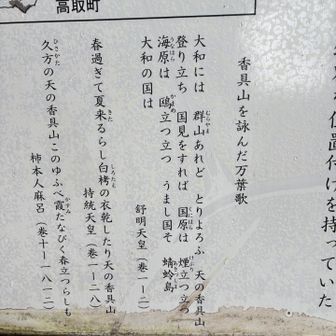 高取町
な位置付けを持っていた
香具山を詠んだ万葉歌
大和には　群山あれど　とりよろふ　天の香具山
登り立ち　国見をすれば　国原は　煙立つ立つ
海原は　鴎立つ立つ　うまし国そ　蜻蛉島
大和の国は
舒明天皇（巻一ー二）
春過ぎて夏来るらし白栲の衣乾したり天の香具山
持統天皇（巻一ー二八）
久方の天の香具山このゆふべ霞たなびく春立つらしも
柿本人麻呂（巻十ー一八一二）